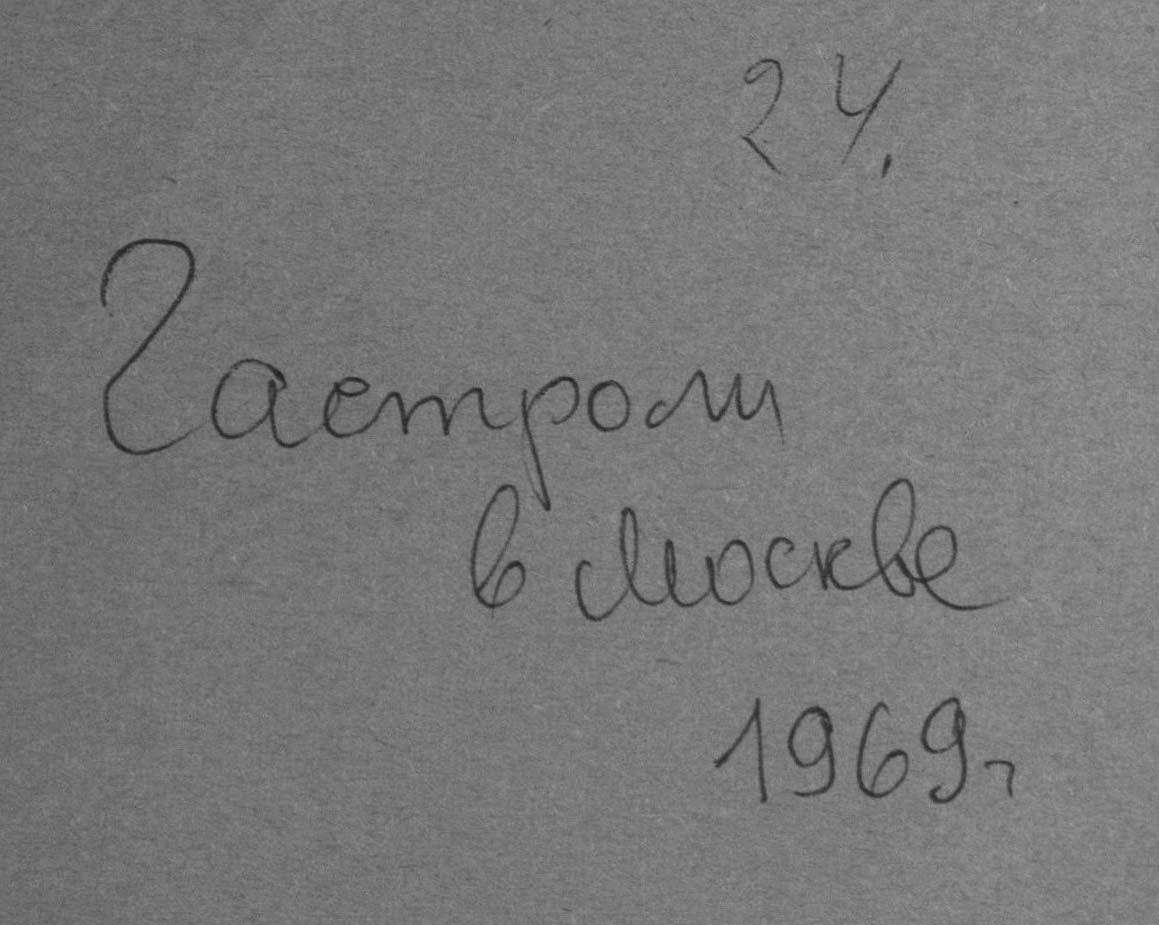 24.
Гастроли
в Москве
1969г